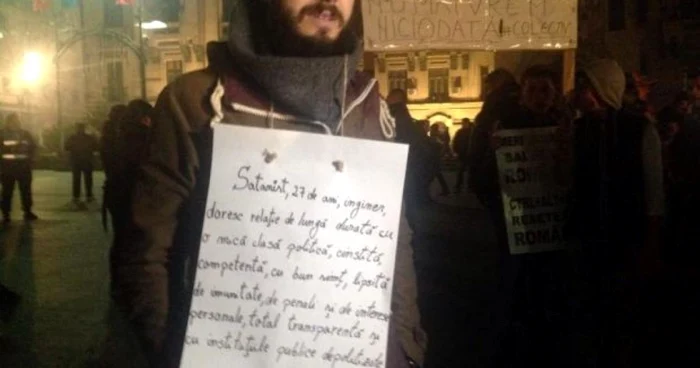 NU MAI VREM
NICIODATĂ #COLECTIV
Satanist, 27 de ani, inginer,
doresc relație de lungă durată cu
o mică clasă politică, cinstită,
competentă, cu bun simț, lipsită
de imunitate, de penali și de interese
personale, total transparentă și
cu instituțiile publice depolitizate
RESETEA
ROMÂN